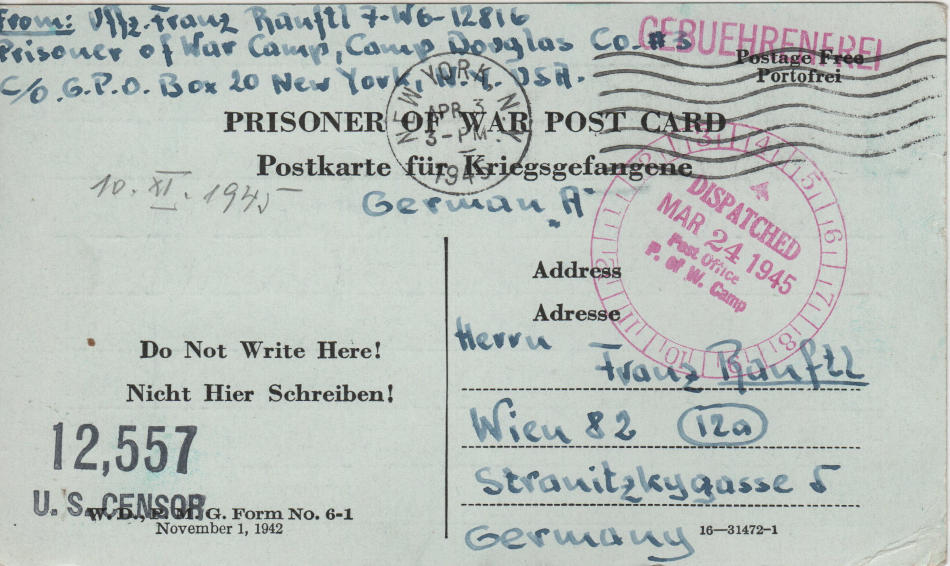 From: Uffz. Franz Ranftl 7-W6-12816
Prisoner of War Camp, Camp Douglas Co. #3
C/O. G.P.O. Box 20 New York, N.Y. USA.
GEBUEHRENFREI
Postage Free
Portofrei
NEW YORK, N.Y.
APR 3
3-PM
1945
PRISONER OF WAR POST CARD
Postkarte für Kriegsgefangene
10. XI. 1945
German „A"
DISPATCHED
MAR 24 1945
Post Office
P. of W. Camp
1 2 3 4 5 6 7 8 9 10 11 12
Address
Adresse
Do Not Write Here!
Nicht Hier Schreiben!
Herrn
Franz Ranftl
Wien 82 12a
Stranitzkygasse 5
Germany
12,557
U. S. CENSOR
W. D., P. M. G. Form No. 6-1
November 1, 1942
16—31472-1